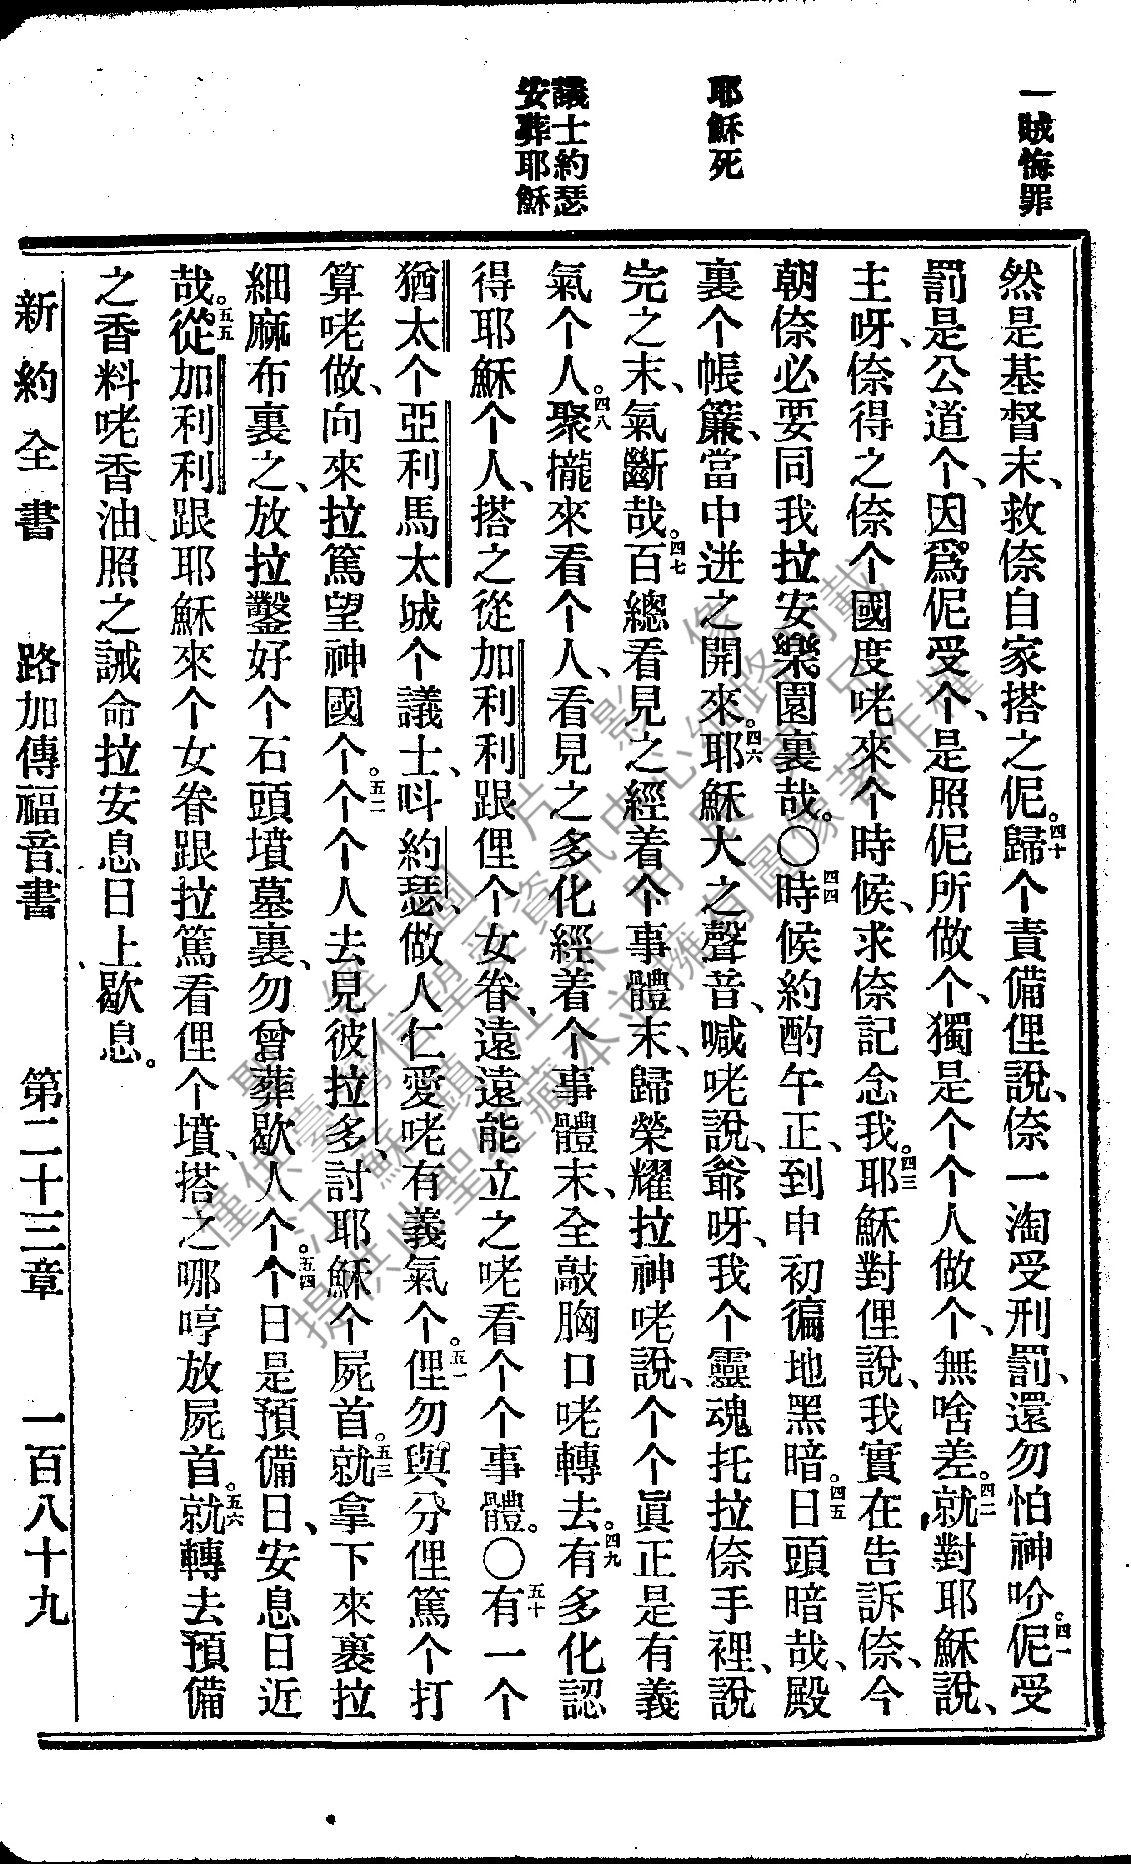 一賊悔罪
耶穌死
議士約瑟
安葬耶穌
然是基督末、救倷自家搭之伲。四十歸个責備俚說、倷一淘受刑罰、還勿怕神吤。四一伲受
罰是公道个、因爲伲受个、是照伲所做个、獨是个个人做个、無啥差。四二就對耶穌說、
主呀、倷得之倷个國度咾來个時候、求倷記念我。四三耶穌對俚說、我實在告訴倷、今
朝倷必要同我拉安樂園裏哉。〇四四時候約酌午正、到申初徧地黑暗。四五日頭暗哉、殿
裏个帳簾、當中迸之開來。四六耶穌大之聲音、喊咾說、爺呀、我个靈魂托拉倷手裡、說
完之末、氣斷哉。四七百總看見之經着个事體末、歸榮耀拉神咾說、个个眞正是有義
氣个人。四八聚攏來看个人、看見之多化經着个事體末、全敲胸口咾轉去。四九有多化認
得耶穌个人、搭之從加利利跟俚个女眷、遠遠能立之咾看个个事體。〇五十有一个
猶太个亞利馬太城个議士、呌約瑟、做人仁愛咾有義氣个。五一俚勿與分俚篤个打
算咾做、向來拉篤望神國个。五二个个人去見彼拉多、討耶穌个屍首。五三就拿下來裹拉
細麻布裏之、放拉鑿好个石頭墳墓裏、勿曾葬歇人个。五四个日是預備日、安息日近
哉。五五從加利利跟耶穌來个女眷跟拉篤看俚个墳、搭之哪哼放屍首。五六就轉去預備
之香料咾香油照之誡命拉安息日上歇息。
新約全書 路加傳福音書 第二十三章 一百八十九